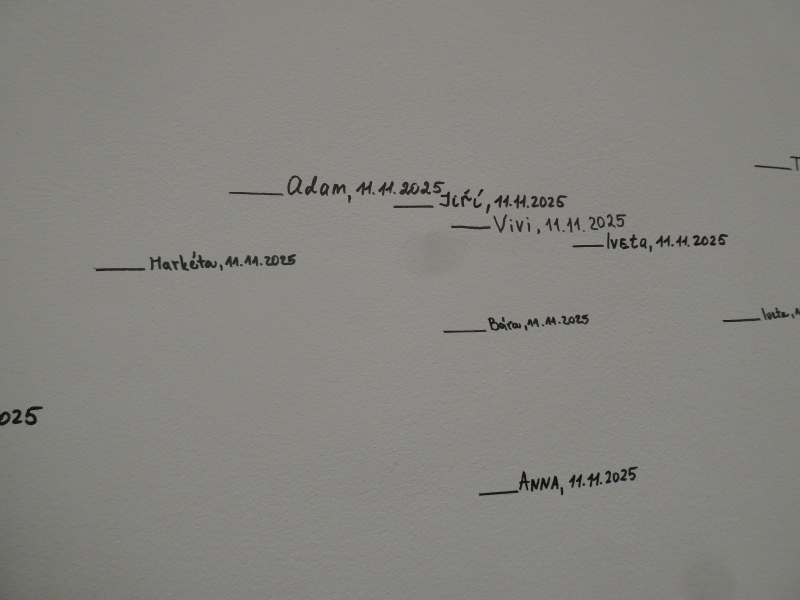 Adam, 11.11.2025
Jiří, 11.11.2025
Vivi, 11.11.2025
Iveta, 11.11.2025
Markéta, 11.11.2025
Bára, 11.11.2025
Iveta, 1
025
ANNA, 11.11.2025